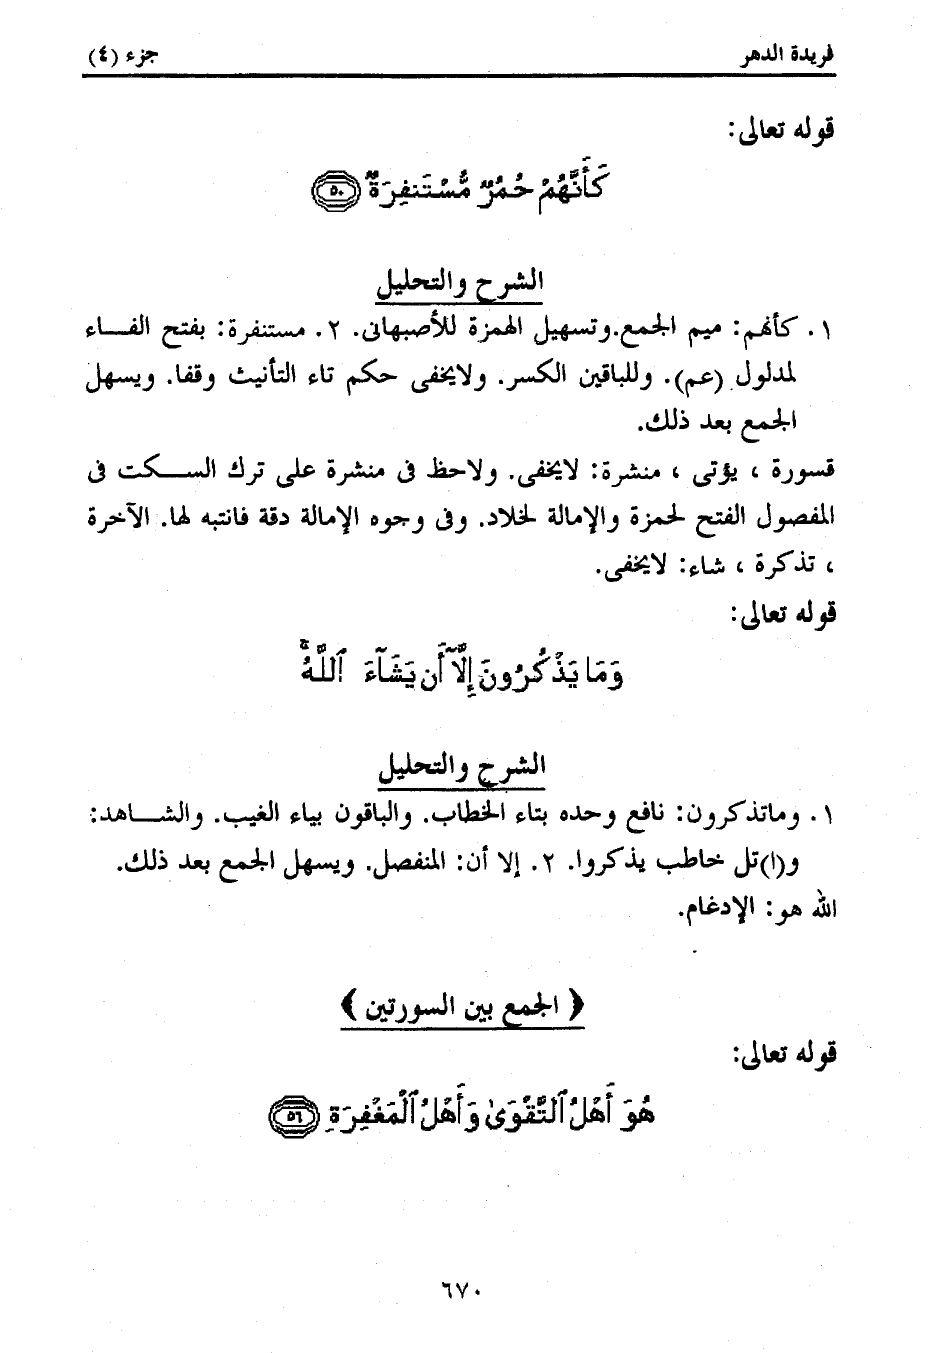 فريدة الدهر جزء (٤)
قوله تعالى:
كَأَنَّهُمْ حُمُرٌ مُّسْتَنفِرَةٌ ٥٠
الشرح والتحليل
١. كأنهم: ميم الجمع.وتسهيل الهمزة للأصبهانى. ٢. مستنفرة: بفتح الفـــاء
لمدلول (عم). وللباقين الكسر. ولايخفى حكم تاء التأنيث وقفا. ويسهل
الجمع بعد ذلك.
قسورة ، يؤتى ، منشرة: لايخفى. ولاحظ فى منشرة على ترك الســـكت فى
المفصول الفتح لحمزة والإمالة لخلاد. وفى وجوه الإمالة دقة فانتبه لها. الآخرة
، تذكرة ، شاء: لايخفى.
قوله تعالى:
وَمَا يَذْكُرُونَ إِلَّآ أَن يَشَآءَ ٱللَّهُ ۚ
الشرح والتحليل
١. وماتذكرون: نافع وحده بتاء الخطاب. والباقون بياء الغيب. والشـــاهد:
و(ا)تل خاطب يذكروا. ٢. إلا أن: المنفصل. ويسهل الجمع بعد ذلك.
الله هو: الإدغام.
﴿ الجمع بين السورتين ﴾
قوله تعالى:
هُوَ أَهْلُ ٱلتَّقْوَىٰ وَأَهْلُ ٱلْمَغْفِرَةِ ٥٦
٦٧٠